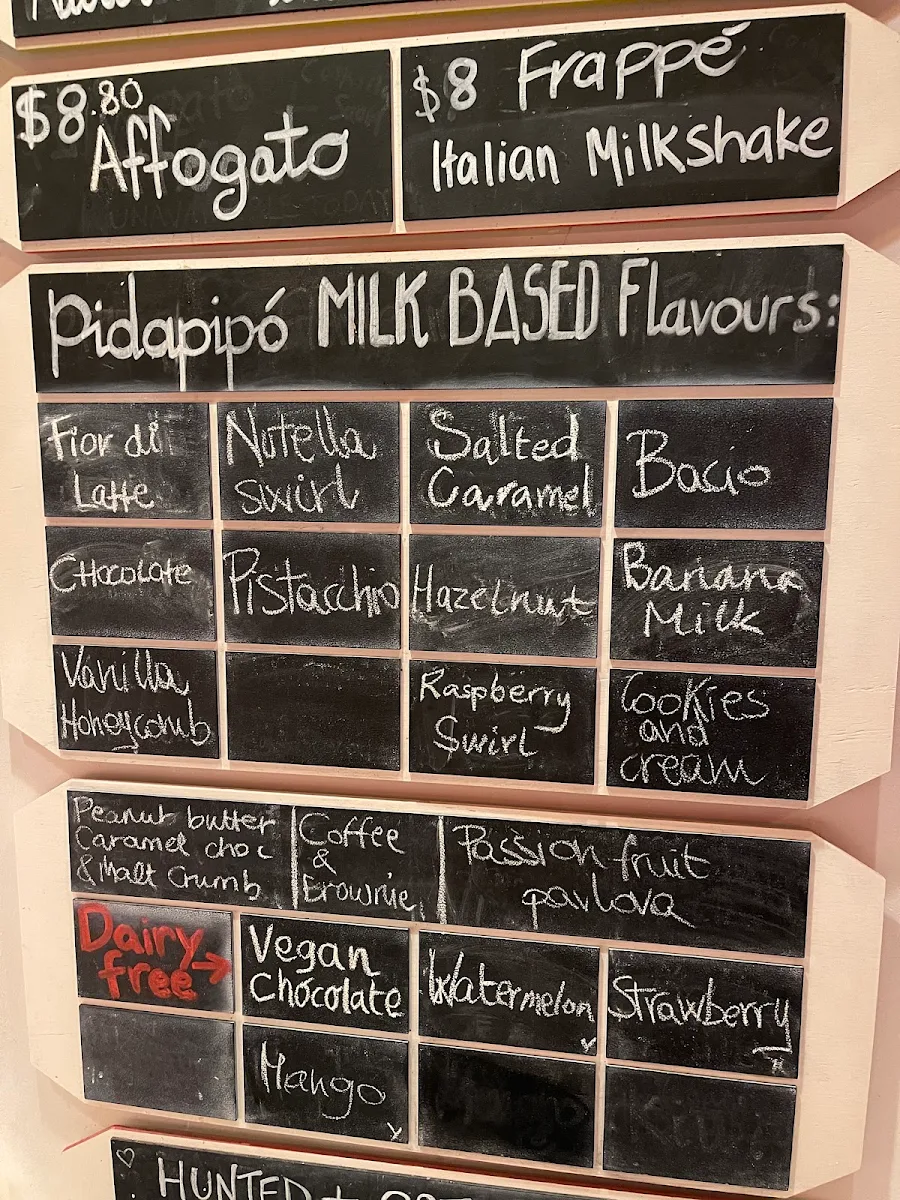 $8.80
Affogato
$8 Frappé
Italian Milkshake
Pidapipó MILK BASED Flavours:
Fior di
Latte
Nutella
swirl
Salted
Caramel
Bacio
Chocolate
Pistacchio
Hazelnut
Banana
Milk
Vanilla
Honeycomb
Raspberry
Swirl
Cookies
and
cream
Peanut butter
Caramel choc
& Malt Crumb
Coffee
&
Brownie
Passion fruit
pavlova
Dairy
free →
Vegan
Chocolate
Watermelon
Strawberry
Mango
♡ HUNTED +